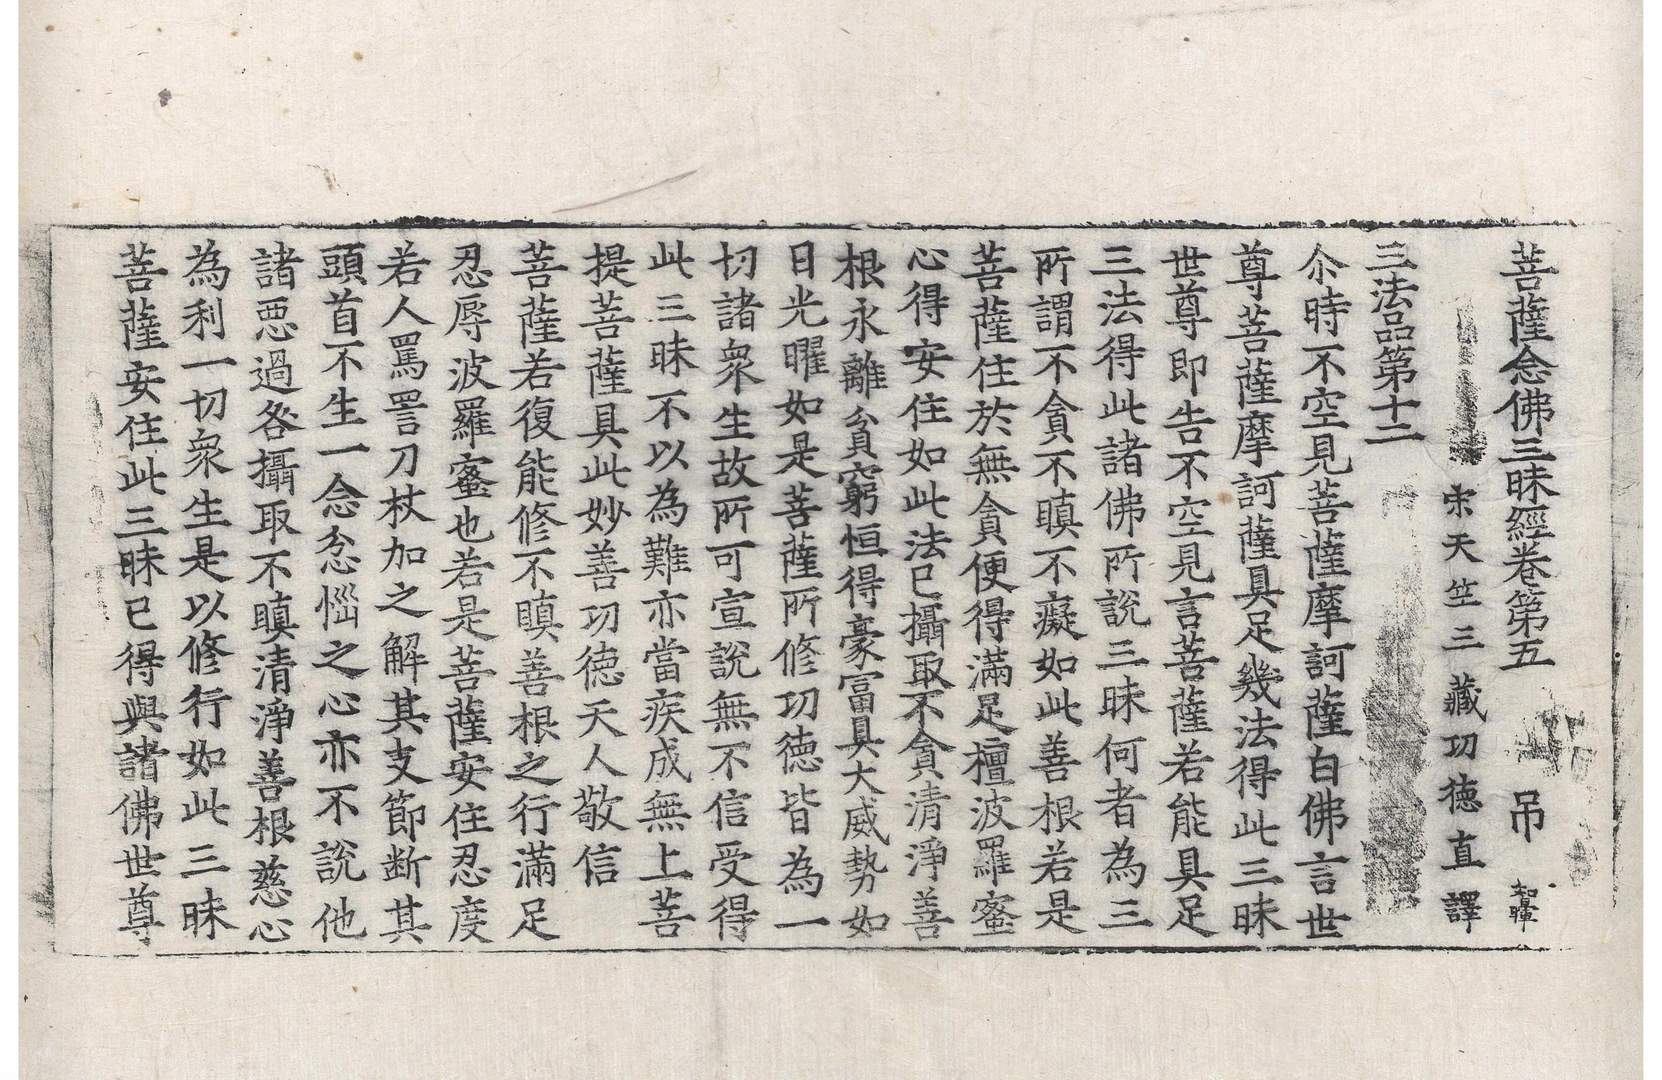 菩薩念佛三昧經卷第五 吊 智暉
宋天竺三藏功徳直譯
三法品第十二
尒時不空見菩薩摩訶薩白佛言世
尊菩薩摩訶薩具足幾法得此三昧
世尊即告不空見言菩薩若能具足
三法得此諸佛所說三昧何者為三
所謂不貪不瞋不癡如此善根若是
菩薩住於無貪便得滿足檀波羅蜜
心得安住如此法已攝取不貪清淨善
根永離貧窮恒得豪冨具大威勢如
日光曜如是菩薩所修功徳皆為一
切諸衆生故所可宣說無不信受得
此三昧不以為難亦當疾成無上菩
提菩薩具此妙善功徳天人敬信
菩薩若復能修不瞋善根之行滿足
忍辱波羅蜜也若是菩薩安住忍度
若人罵詈刀杖加之解其支節斷其
頭首不生一念忿惱之心亦不說他
諸惡過咎攝取不瞋清淨善根慈心
為利一切衆生是以修行如此三昧
菩薩安住此三昧已得與諸佛世尊